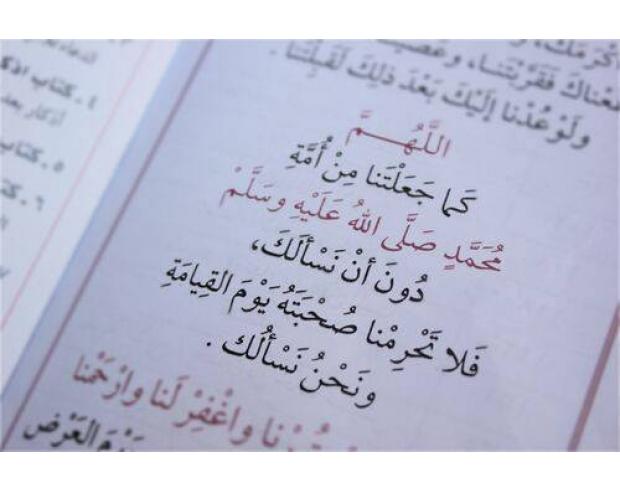 أكرمك،
فقربتنا، وعصي
ولو عدنا إليك بعد ذلك لقبلتنا.
اللَّهُمَّ
كَما جَعَلْتَنا مِنْ أُمَّةِ
مُحَمَّدٍ صَلَّى اللهُ عَلَيْهِ وسَلَّمْ
دُونَ أنْ نَسْألَكَ،
فَلا تَحْرِمْنا صُحْبَتَهُ يَوْمَ القِيامَةِ
ونَحْنُ نَسْألُك.
واغْفِرْ لَنا وارْحَمْنا
يَوْمَ العَرْض
٤. كتاب اذك
أذكار بعد
٥. كتاب
٦. كتا